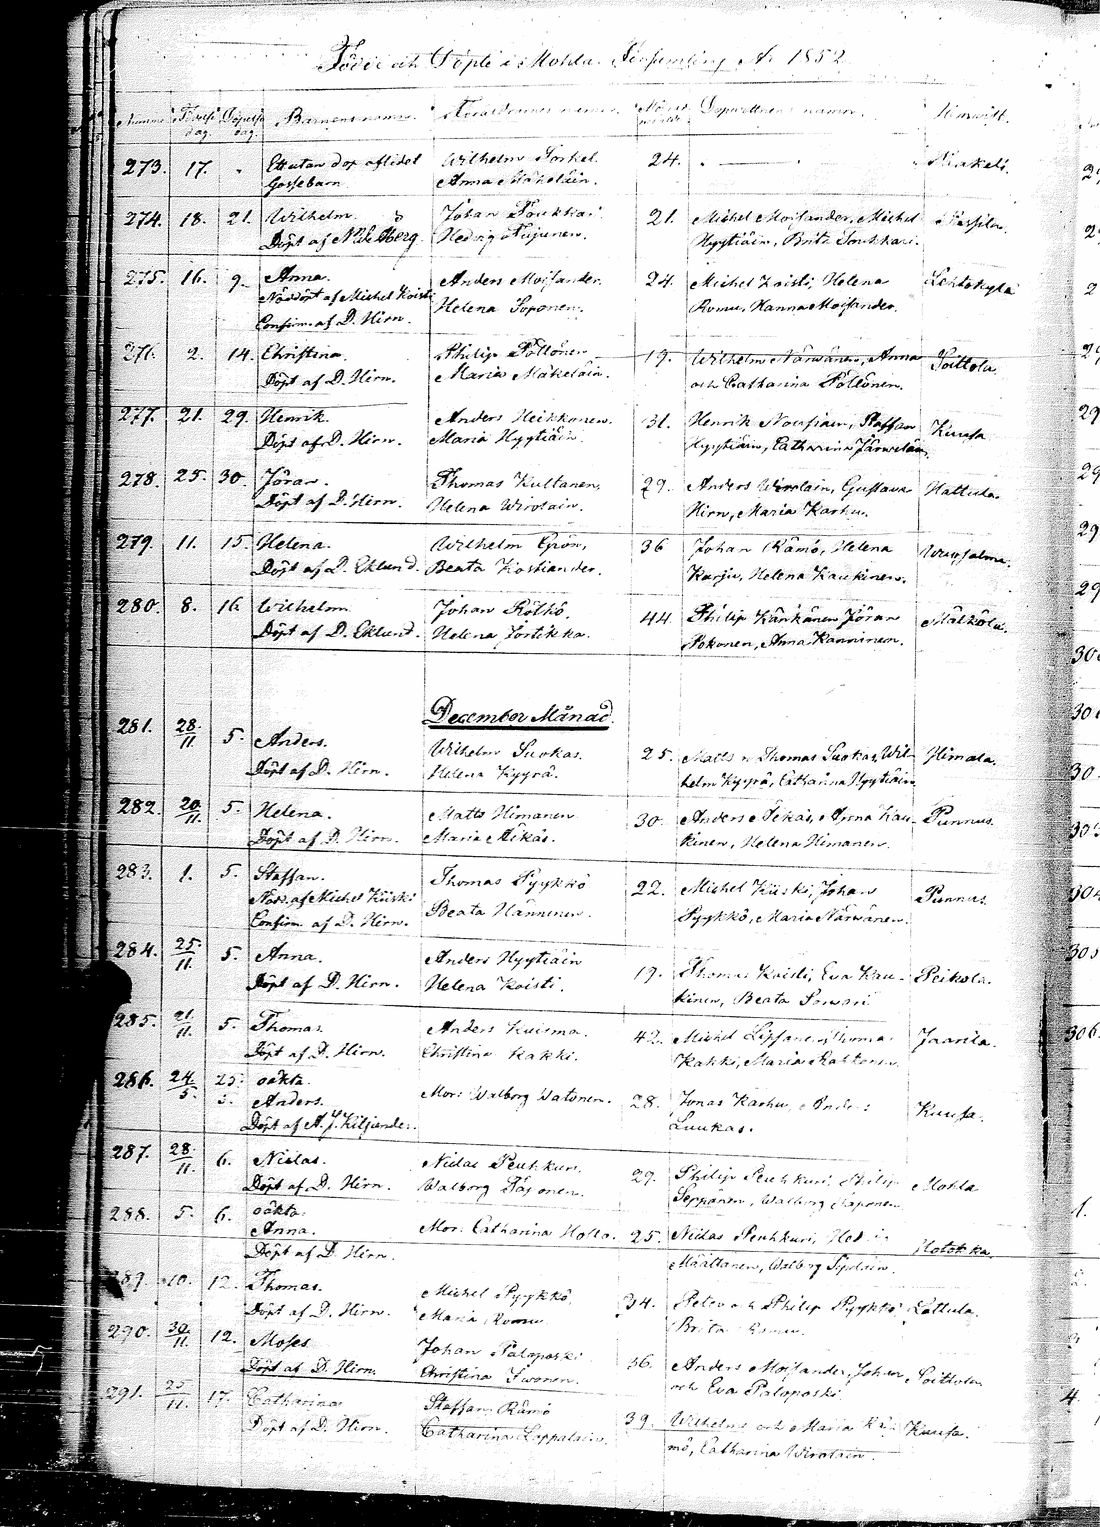 Födde och Döpte i Mohla Församling År 1852
Nummer Födelse dag. Döpelse dag. Barnens namn. Föräldrarnes namn. Moders ålder Dopvittnens namn. Hemvist.
273. 17. Ett utan dop aflidet Wilhelm Torkel. 24.
Gossebarn. Anna Mäkeläin.
274. 18. 21. Wilhelm. Johan Soukkari. 21. Michel Moisander, Michel
Döpt af Hedvig Hyytiäin, Brita Soukkari.
275. 16. 9. Anna. Anders Moisander. 24. Michel Koisti, Helena
Döpt af Michel Koisti Helena Soponen. Romu, Hanna Moisander.
Confirm. af D. Hirn.
276. 2. 14. Christina. Philip Pöllönen. 19. Wilhelm Närwänen, Anna Soittola
Döpt af D. Hirn. Maria Mäkeläin. och Catharina Pöllönen.
277. 21. 29. Henrik. Anders Heikkonen. 31. Henrik Nousiain, Staffan Kuusa
Döpt af D. Hirn. Maria Hyytiäin. Hyytiäin, Catharina Järweläin.
278. 25. 30. Jöran. Thomas Kultanen. 29. Anders Wirolain, Gustava Hattula.
Döpt af D. Hirn. Helena Wirolain. Hirn, Maria Karhu.
279. 11. 15. Helena. Wilhelm Grön. 36 Johan Rämö, Helena
Döpt af D. Eklund. Beata Kostiander. Karju, Helena Kaukinen.
280. 8. 16. Wilhelm. Johan Röthö. 44. Philip Känkänen, Jöran Mälkölä.
Döpt af D. Eklund. Helena Jortikka. Pokonen, Anna Kanninen.
December Månad.
281. 28/11. 5. Anders. Wilhelm Suokas. 25. Matts o Thomas Suokas, Wil- Himala.
Döpt af D. Hirn. Helena Kyyrä. helm Kyyrä, Catharina Hyytiäin
282. 20/11. 5. Helena. Matts Himanen. 30. Anders Anna Kau- Punnus.
Döpt af D. Hirn. Maria kinen, Helena Himanen.
283. 1. 5. Staffan. Thomas Pyykkö 22. Michel Kiiski, Johan Punnus.
Nöd. af Michel Kiiski Beata Hänninen. Pyykkö, Maria Närwänen.
Confirm. af D. Hirn.
284. 25/11. 5. Anna. Anders Hyytiäin 19. Thomas Koisti, Eva Kau- Peikola.
Döpt af D. Hirn. Helena Koisti. kinen, Beata
285. 21/11. 5. Thomas. Anders Kuisma. 42. Michel Thomas Jaarila.
Döpt af D. Hirn. Christina Kakki. Kakki, Maria
286. 24/5. 25. oäkta.
3. Anders. Mor: Walborg Watanen. 28. Jonas Karhu, Anders Kuusa.
Döpt af A. J. Kiljander. Luukas.
287. 28/11. 6. Niclas. Niclas Peuhkuri. 29. Philip Peuhkuri, Philip Mohla
Döpt af D. Hirn. Walborg Seppänen, Walborg
288. 5. 6. oäkta.
Anna. Mor: Catharina Holla. 25. Niclas Peuhkuri,
Döpt af D. Hirn. Määttänen, Walborg
289. 10. 12. Thomas. Michel Pyykkö. 34. Peter och Philip Pyykkö Lattula
Döpt af D. Hirn. Maria Romu. Brita Romu.
290. 30/11. 12. Moses. Johan Paloposki 36. Anders Moisander, Johan Soittola
Döpt af D. Hirn. Christina Iwonen. och Eva Paloposki
291. 25/11. 17. Catharina Staffan Rämö 39. Wilhelm och Maria Rä- Kuusa.
Döpt af D. Hirn. Catharina Lappalain. mö, Catharina Wirolain.